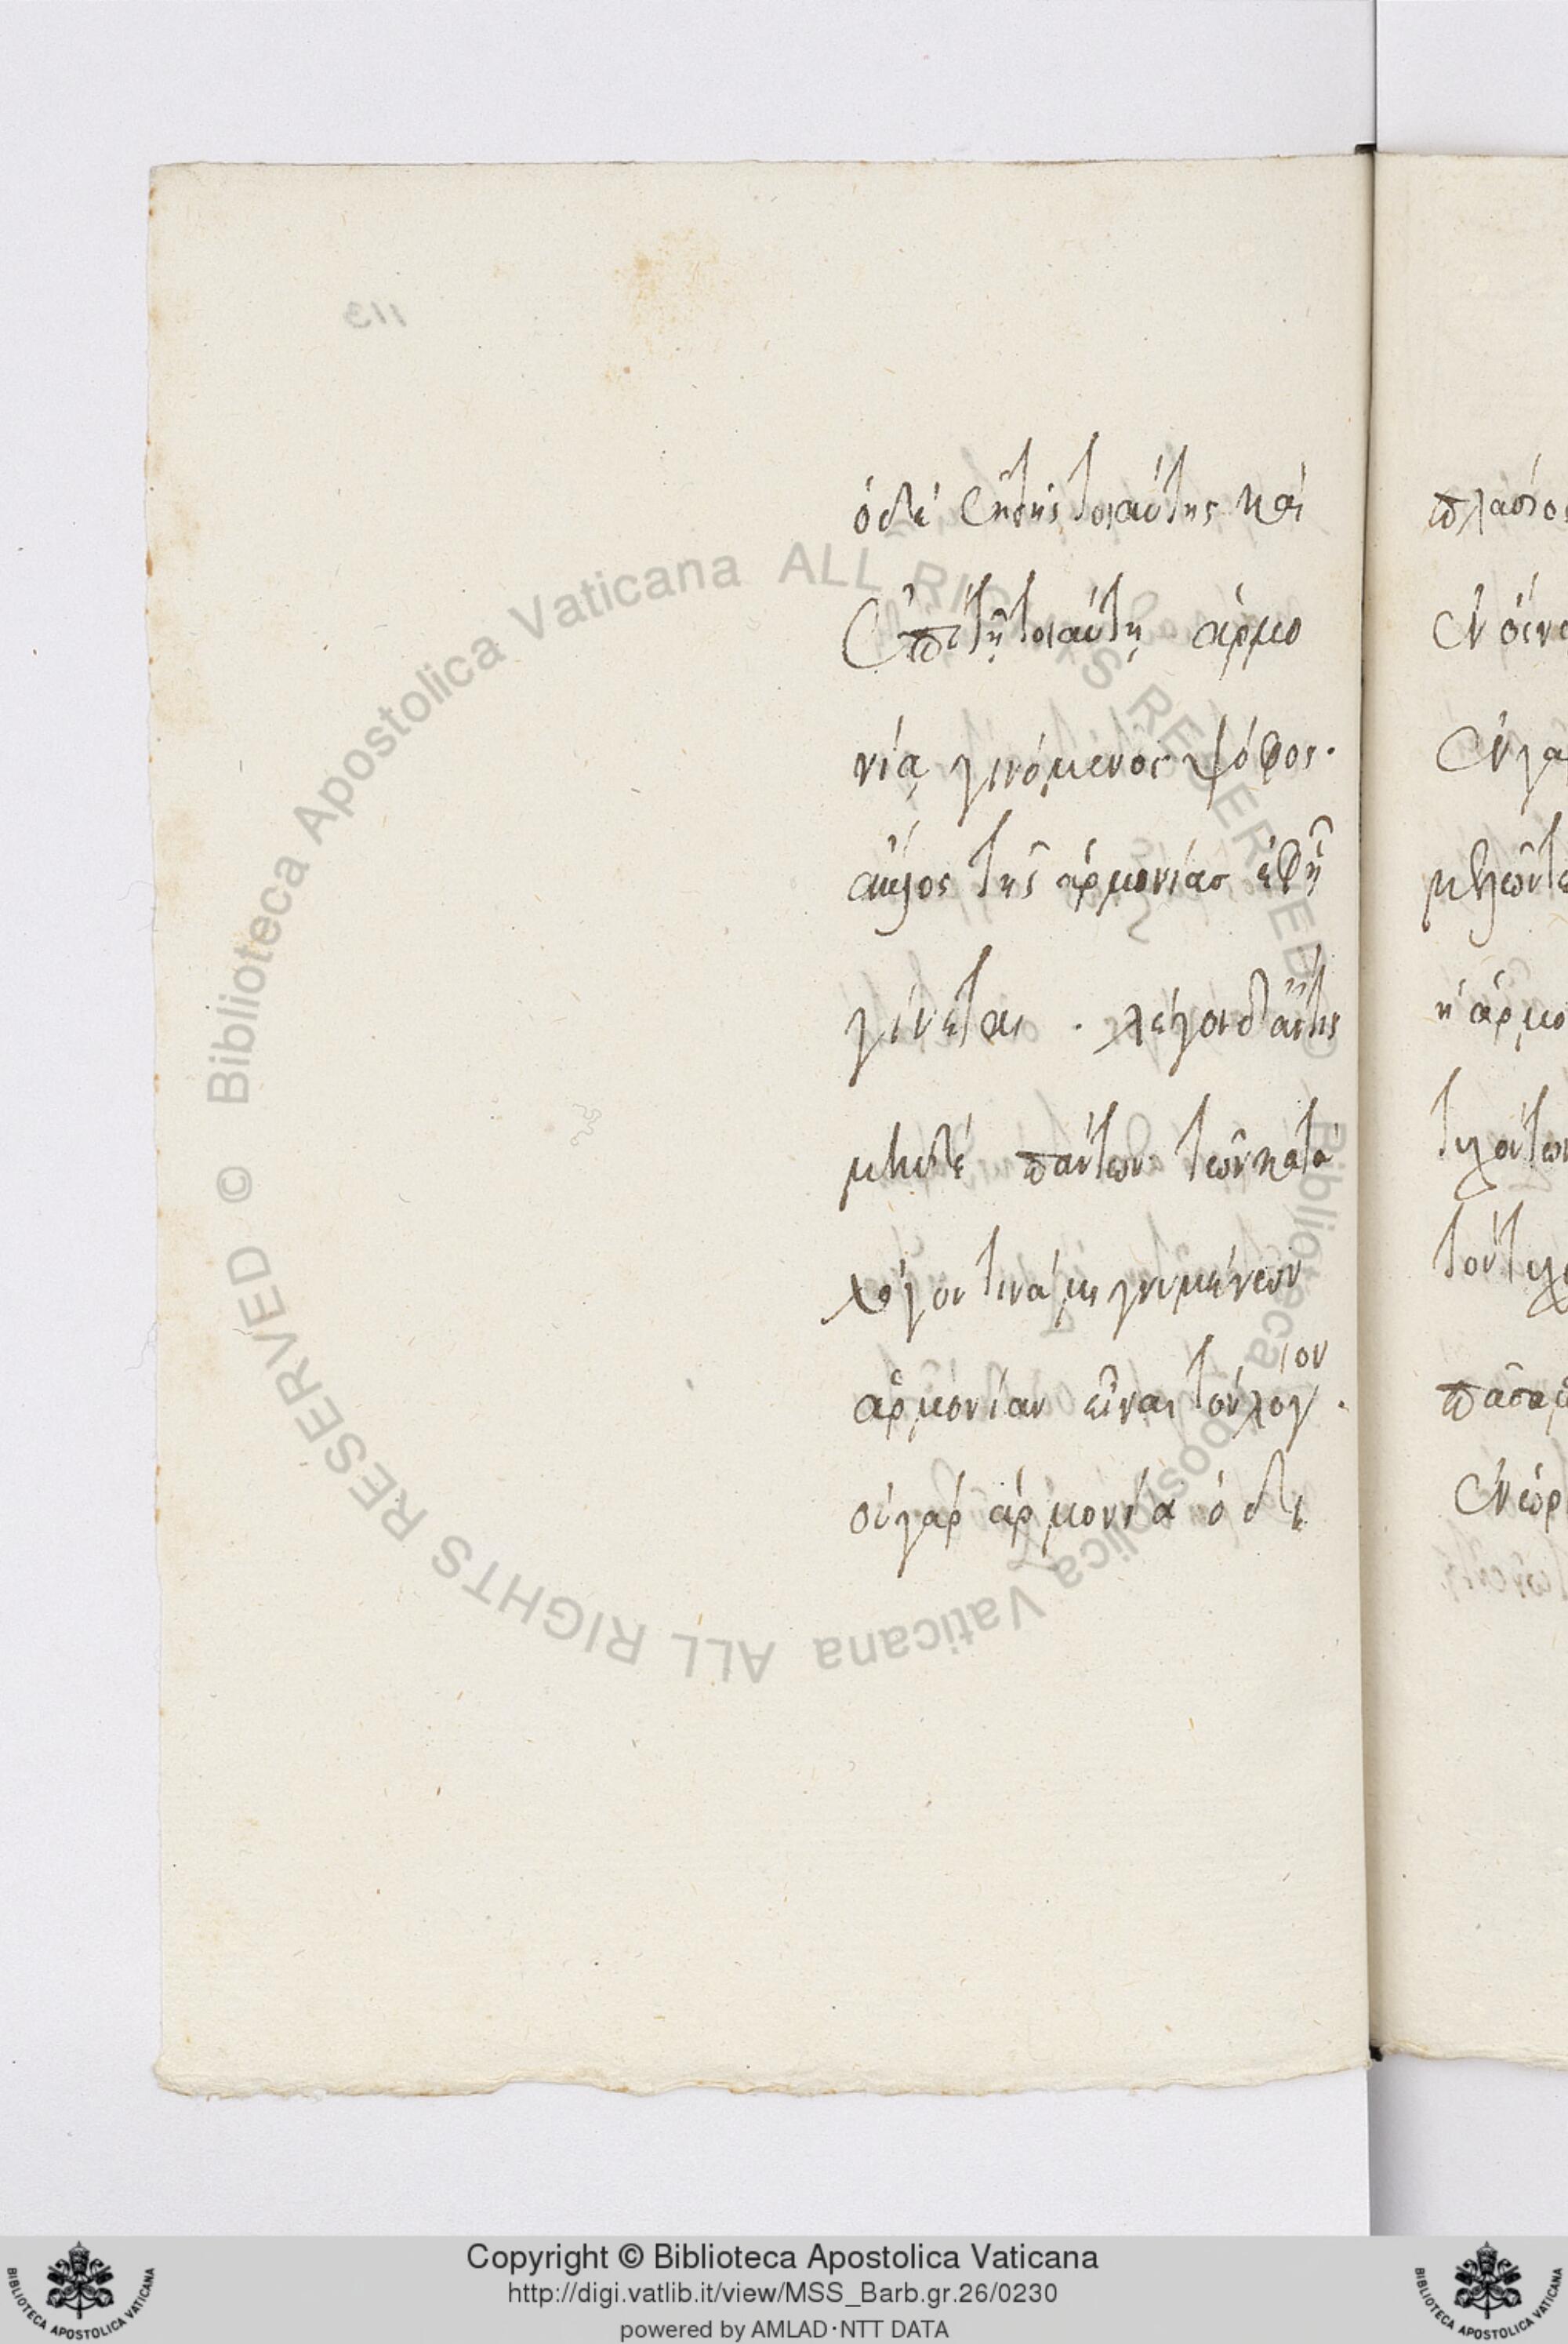 ὁ δὲ ἐκ τῆς τοιαύτης καὶ
ἐπὶ τῇ τοιαύτῃ ἁρμο
νίᾳ γινόμενος ψόφος.
μέλος τῆς ἁρμονίας ἐφ' ᾗ
γίνεται . λέγοι δ' ἂν τις
μηδὲ πάντων τῶν κατὰ
λόγον τινὰ μιγνυμένων
ἁρμονίαν εἶναι τὸν λόγον .
οὐ γὰρ ἁρμονία ὁ δι
πλασίο
ἐν οἴνο
ἐν γα
ἡ ἁρμο
113
© Biblioteca Apostolica Vaticana ALL RIGHTS RESERVED
© Biblioteca Apostolica Vaticana ALL RIGHTS RESERVED
Copyright © Biblioteca Apostolica Vaticana
http://digi.vatlib.it/view/MSS_Barb.gr.26/0230
powered by AMLAD·NTT DATA
BIBLIOTECA APOSTOLICA VATICANA
BIBLIOTECA APOSTOLICA VATICANA